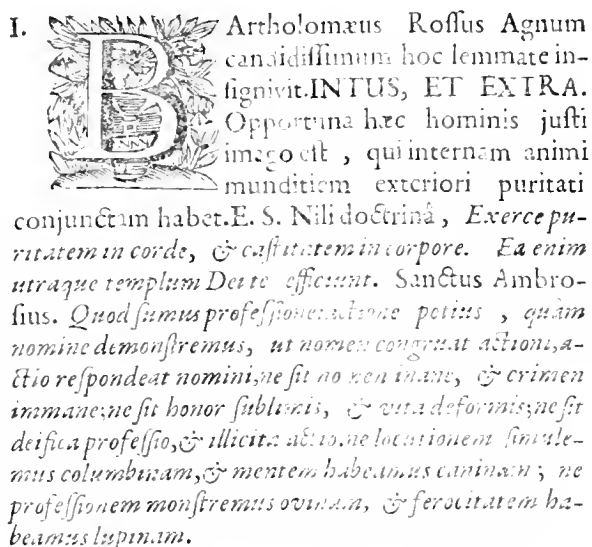 I. BArtholomæus Roſſus Agnum
candidiſſimum hoc lemmate in-
ſignivit. INTUS, ET EXTRA.
Opportuna hæc hominis juſti
imago eſt , qui internam animi
munditiem exteriori puritati
conjunctam habet. E. S. Nili doctrinâ , Exerce pu-
ritatem in corde, & caſtitatem in corpore. Ea enim
utraque templum Dei te efficiunt. Sanctus Ambro-
ſius. Quod ſumus profeſſione, actione potius , quàm
nomine demonſtremus, ut nomen congruat actioni, a-
ctio reſpondeat nomini; ne ſit nomen inane, & crimen
immane; ne ſit honor ſublimis, & vita deformis; ne ſit
deifica profeſſio, & illicita actio. ne locutionem ſimule-
mus columbinam, & mentem habeamus caninam ; ne
profeſſionem monſtremus ovinam, & ferocitatem ha-
beamus lupinam.